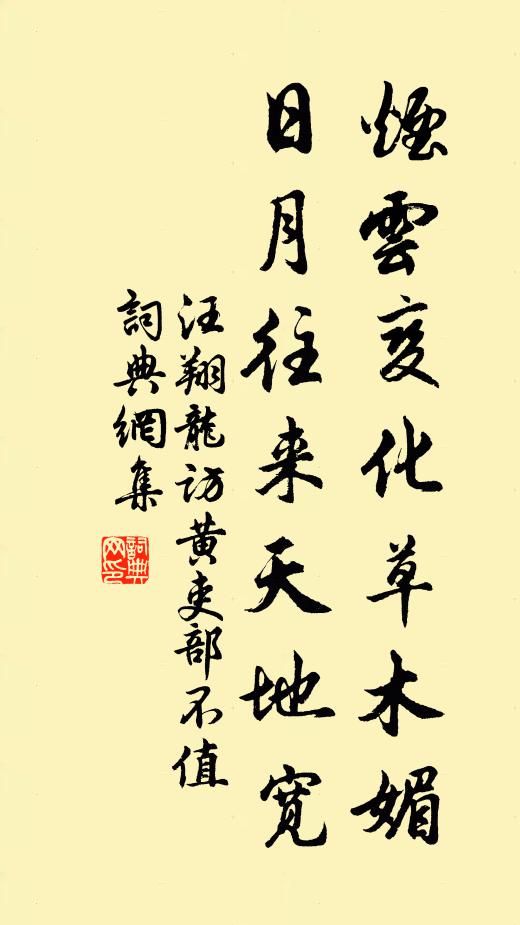 煙雲变化草木媚
日月往来天地寬
汪翔龍訪黄吏部不值
詞典網集
詞典网印